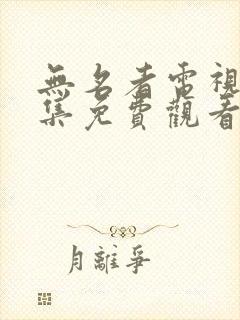 無名者電視
集免費觀看
月離爭